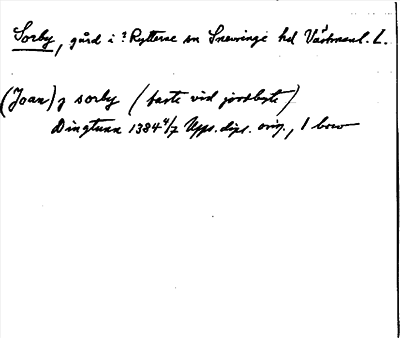 Sorby, gård i ? Rytterne sn Snevringe hd Västmanl. L.
(Joan) j sorby (faste vid jordbyte)
Dingtuna 1384 4/7 Upps. dipl. orig., 1 bow